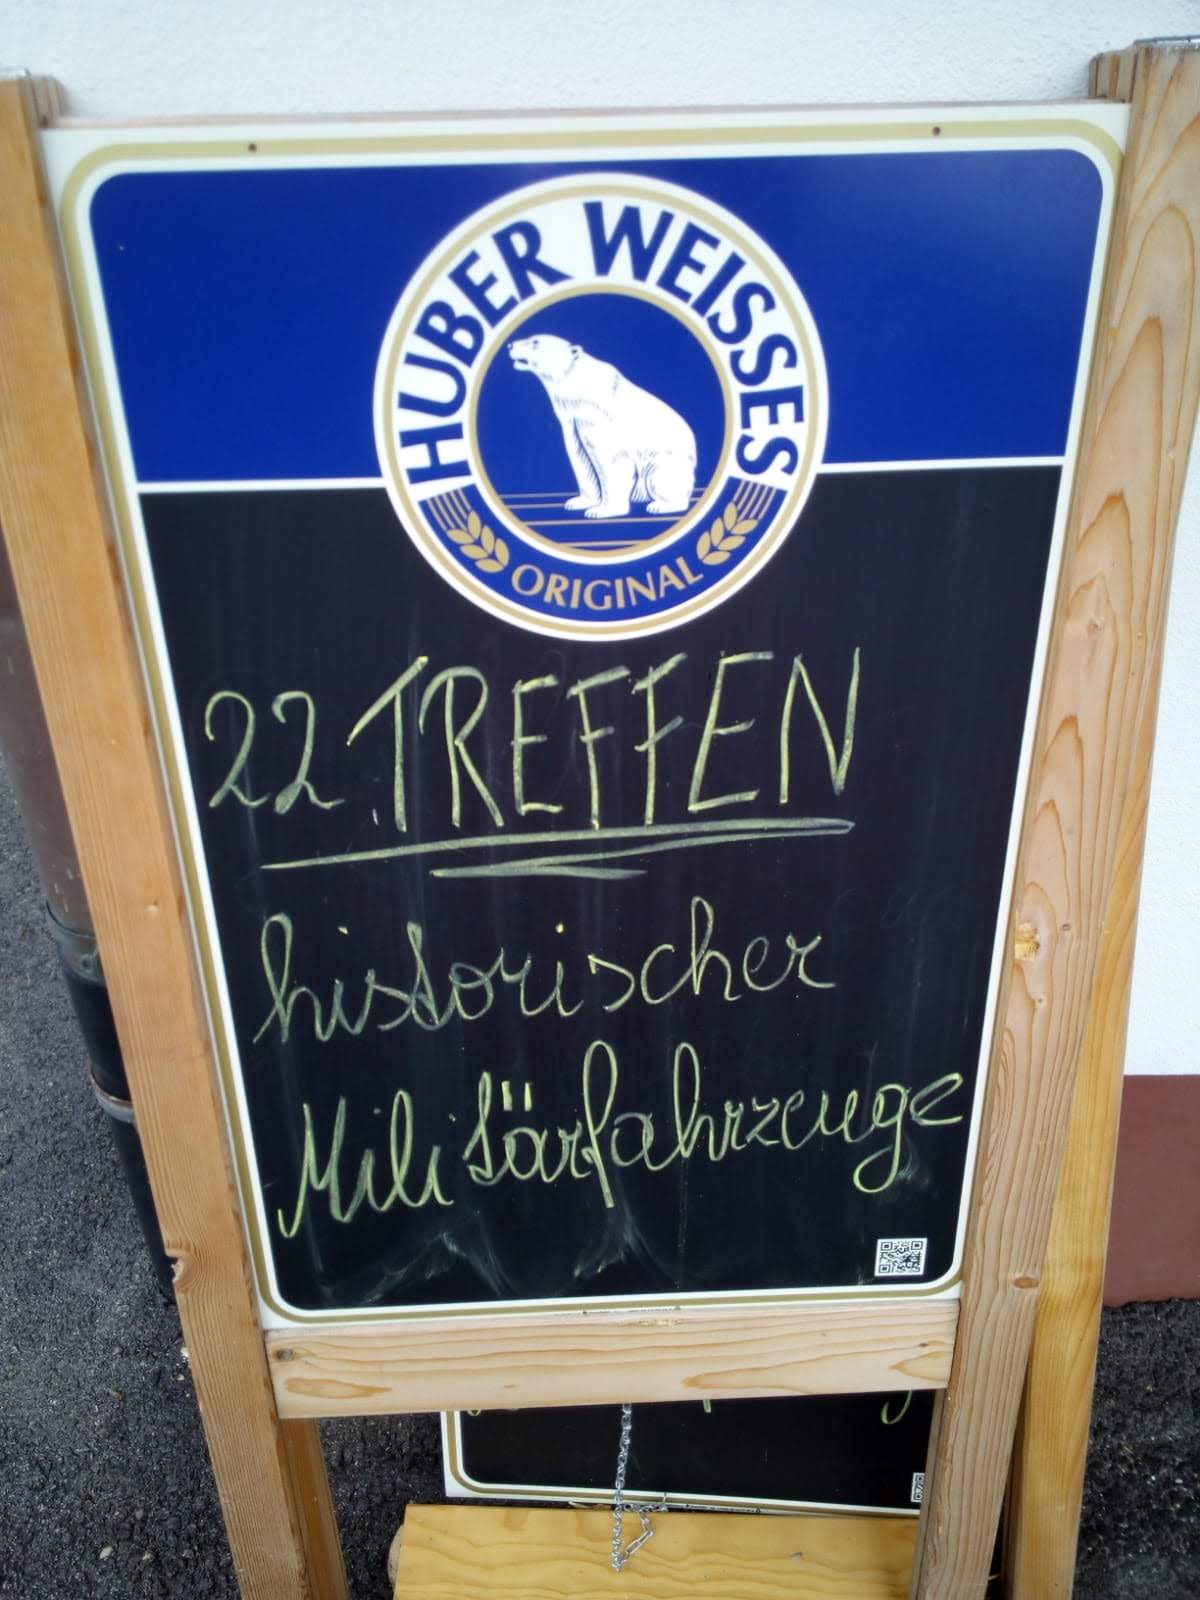 HUBER WEISSES
ORIGINAL
22 TREFFEN
historischer
Militärfahrzeuge